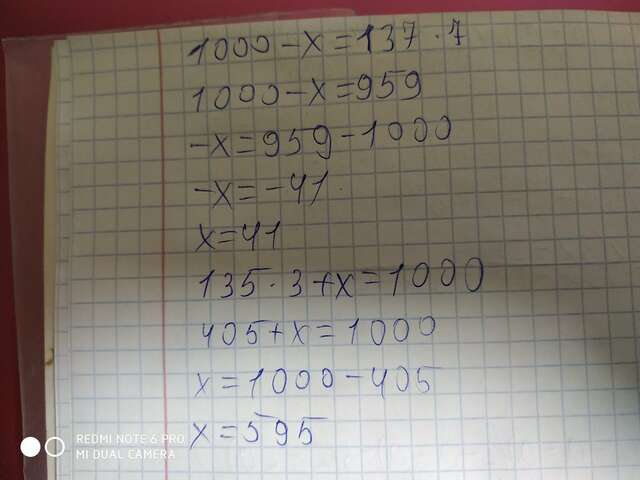 1000-x=137·7
1000-x=959
-x=959-1000
-x=-41.
x=41
135·3+x=1000
405+x=1000
x=1000-405
x=595
REDMI NOTE 6 PRO
MI DUAL CAMERA